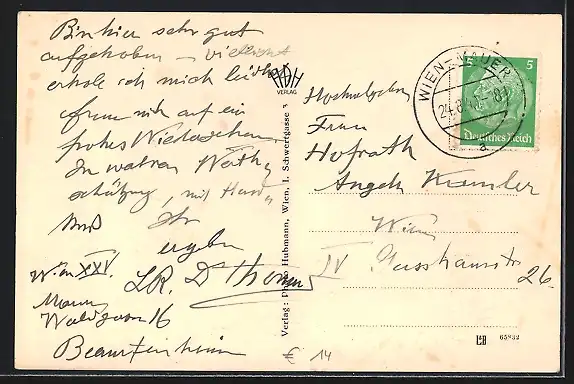 Bin hier sehr gut
aufgehoben – vielleicht
erhole ich mich leider
freue mich auf ein
frohes Wiedersehen.
In wahrer Wert
schätzung, mit Hand
Kuß Ihr
ergeben
LR. Dr Thomas
Wien XXV.
Mauer
Waldgasse 16
Beamtenheim
PHOH
VERLAG
Verlag: Photo Hubmann, Wien, I. Schwertgasse 3
WIEN-MAUER
24.8.4
8
a
5 5
Deutsches Reich
Hochwolgeboren
Frau
Hofrath
Angela Kremler
Wien
IV Gusshausstr 26
65932
€ 14